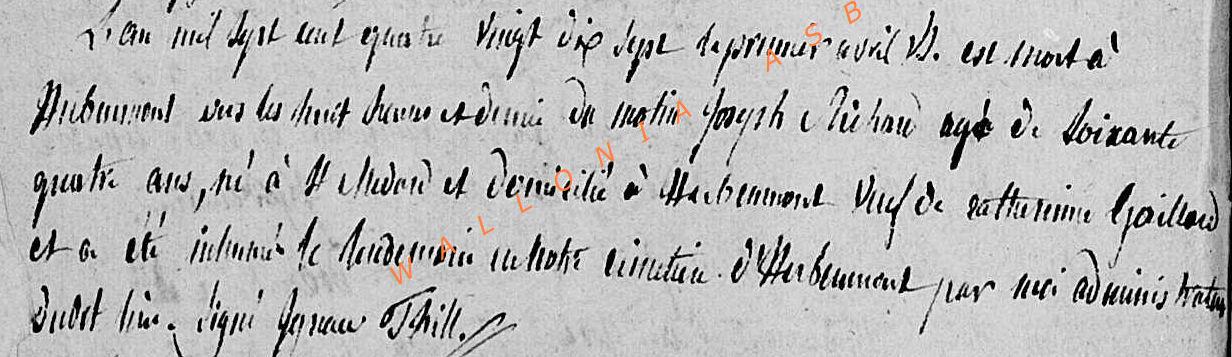 L'an mil sept cent quatre vingt dix sept le premier avril V.S. est mort à
Herbeumont vers les huit heures et demie du matin Joseph Richard agé de Soixante
quatre ans, né à St Medard et domicilié à Herbeumont veuf de catherinne Gaillard
et a été inhumé le lendemain en notre cimetiere d'Herbeumont par moi administrateur
dudit lieu. Signé Thill.
WALLONIA ASB